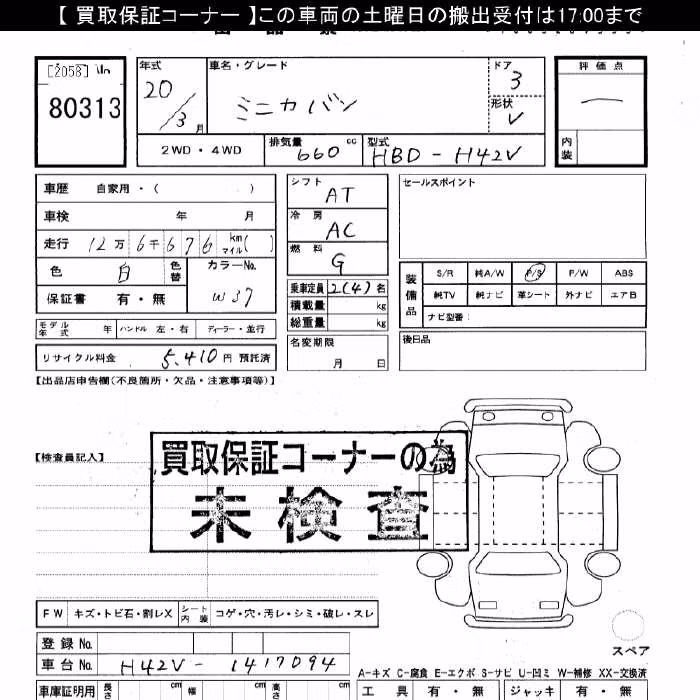 【 買取保証コーナー 】この車両の土曜日の搬出受付は17:00まで
[2058]
80313
年式
20/3月
車名・グレード
ミニカバン
ドア
3
形状
V
評価点
内装
2WD・4WD
排気量 660 cc
型式 HBD-H42V
車歴 自家用・( )
車検 年 月
走行 12万6千676 km マイル( )
色 白 色替
カラーNo. W37
保証書 有・無
モデル年式 年 ハンドル 左・右 ディーラー・並行
リサイクル料金 5,410円 預託済
シフト AT
冷房 AC
燃料 G
乗車定員 2(4)名
積載量 kg
総重量 kg
名変期限 月 日
セールスポイント
装備品
S/R 純A/W P/S P/W ABS
純TV 純ナビ 革シート 外ナビ エアB
ナビ型番:
後日品
【出品店申告欄(不良箇所・欠品・注意事項等)】
【検査員記入】
買取保証コーナーの為
未検査
FW キズ・トビ石・割レX シート内装 コゲ・穴・汚レ・シミ・破レ・スレ
スペア
登録No.
車台No. H42V-1417094
A-キズ C-腐食 E-エクボ S-サビ U-凹ミ W-補修 XX-交換済
車庫証明用 長さ cm 幅 cm 高さ cm
工具 有・無 ジャッキ 有・無